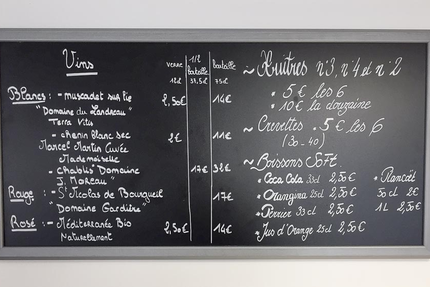 Vins
verre 12cl
1/2 bouteille 37,5cl
bouteille 75cl
Blancs: - muscadet sur lie 2,50€ 14€
"Domaine du Landreau"
Terra Vitis
- chenin blanc sec 2€ 11€
Marcel Martin Cuvée
Mademoiselle
- chablis Domaine 17€ 32€
J. Moreau
Rouge: - St Nicolas de Bourgueil 17€
"Domaine Gardière"
Rosé: - Méditerranée Bio 2,50€ 14€
Naturellement
~ Huîtres n°3, n°4 et n°2
• 5€ les 6
• 10€ la douzaine
~ Crevettes • 5€ les 6
(30-40)
~ Boissons SOFT
• Coca Cola 33cl 2,50€
• Orangina 25cl 2,50€
• Perrier 33cl 2,50€
• Jus d'Orange 25cl 2,50€
• Plancoët
50cl 2€
1L 2,50€